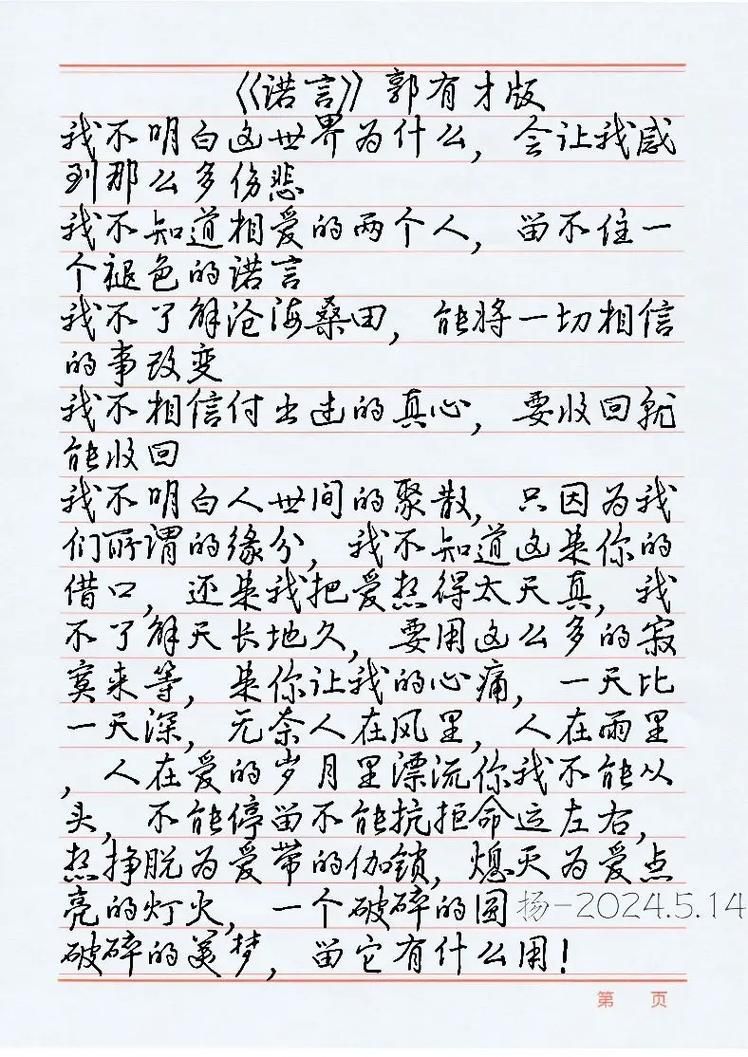 《诺言》郭有才版
我不明白这世界为什么，会让我感
到那么多伤悲
我不知道相爱的两个人，留不住一
个褪色的诺言
我不了解沧海桑田，能将一切相信
的事改变
我不相信付出过的真心，要收回就
能收回
我不明白人世间的聚散，只因为我
们所谓的缘分，我不知道这是你的
借口，还是我把爱想得太天真，我
不了解天长地久，要用这么多的寂
寞来等，是你让我的心痛，一天比
一天深，无奈人在风里，人在雨里
，人在爱的岁月里漂流你我不能从
头，不能停留不能抗拒命运左右，
想挣脱为爱带的伽锁，熄灭为爱点
亮的灯火，一个破碎的圆
扬-2024.5.14
破碎的美梦，留它有什么用！
第 页